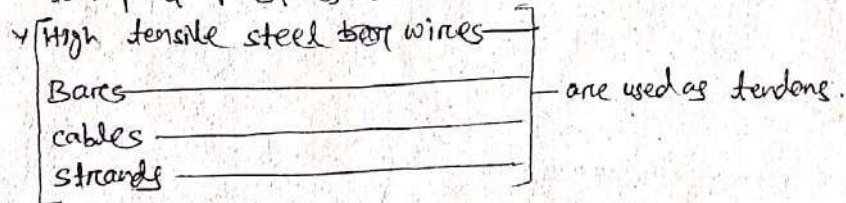 High tensile steel wires
Bars
cables
strands
are used as tendons.